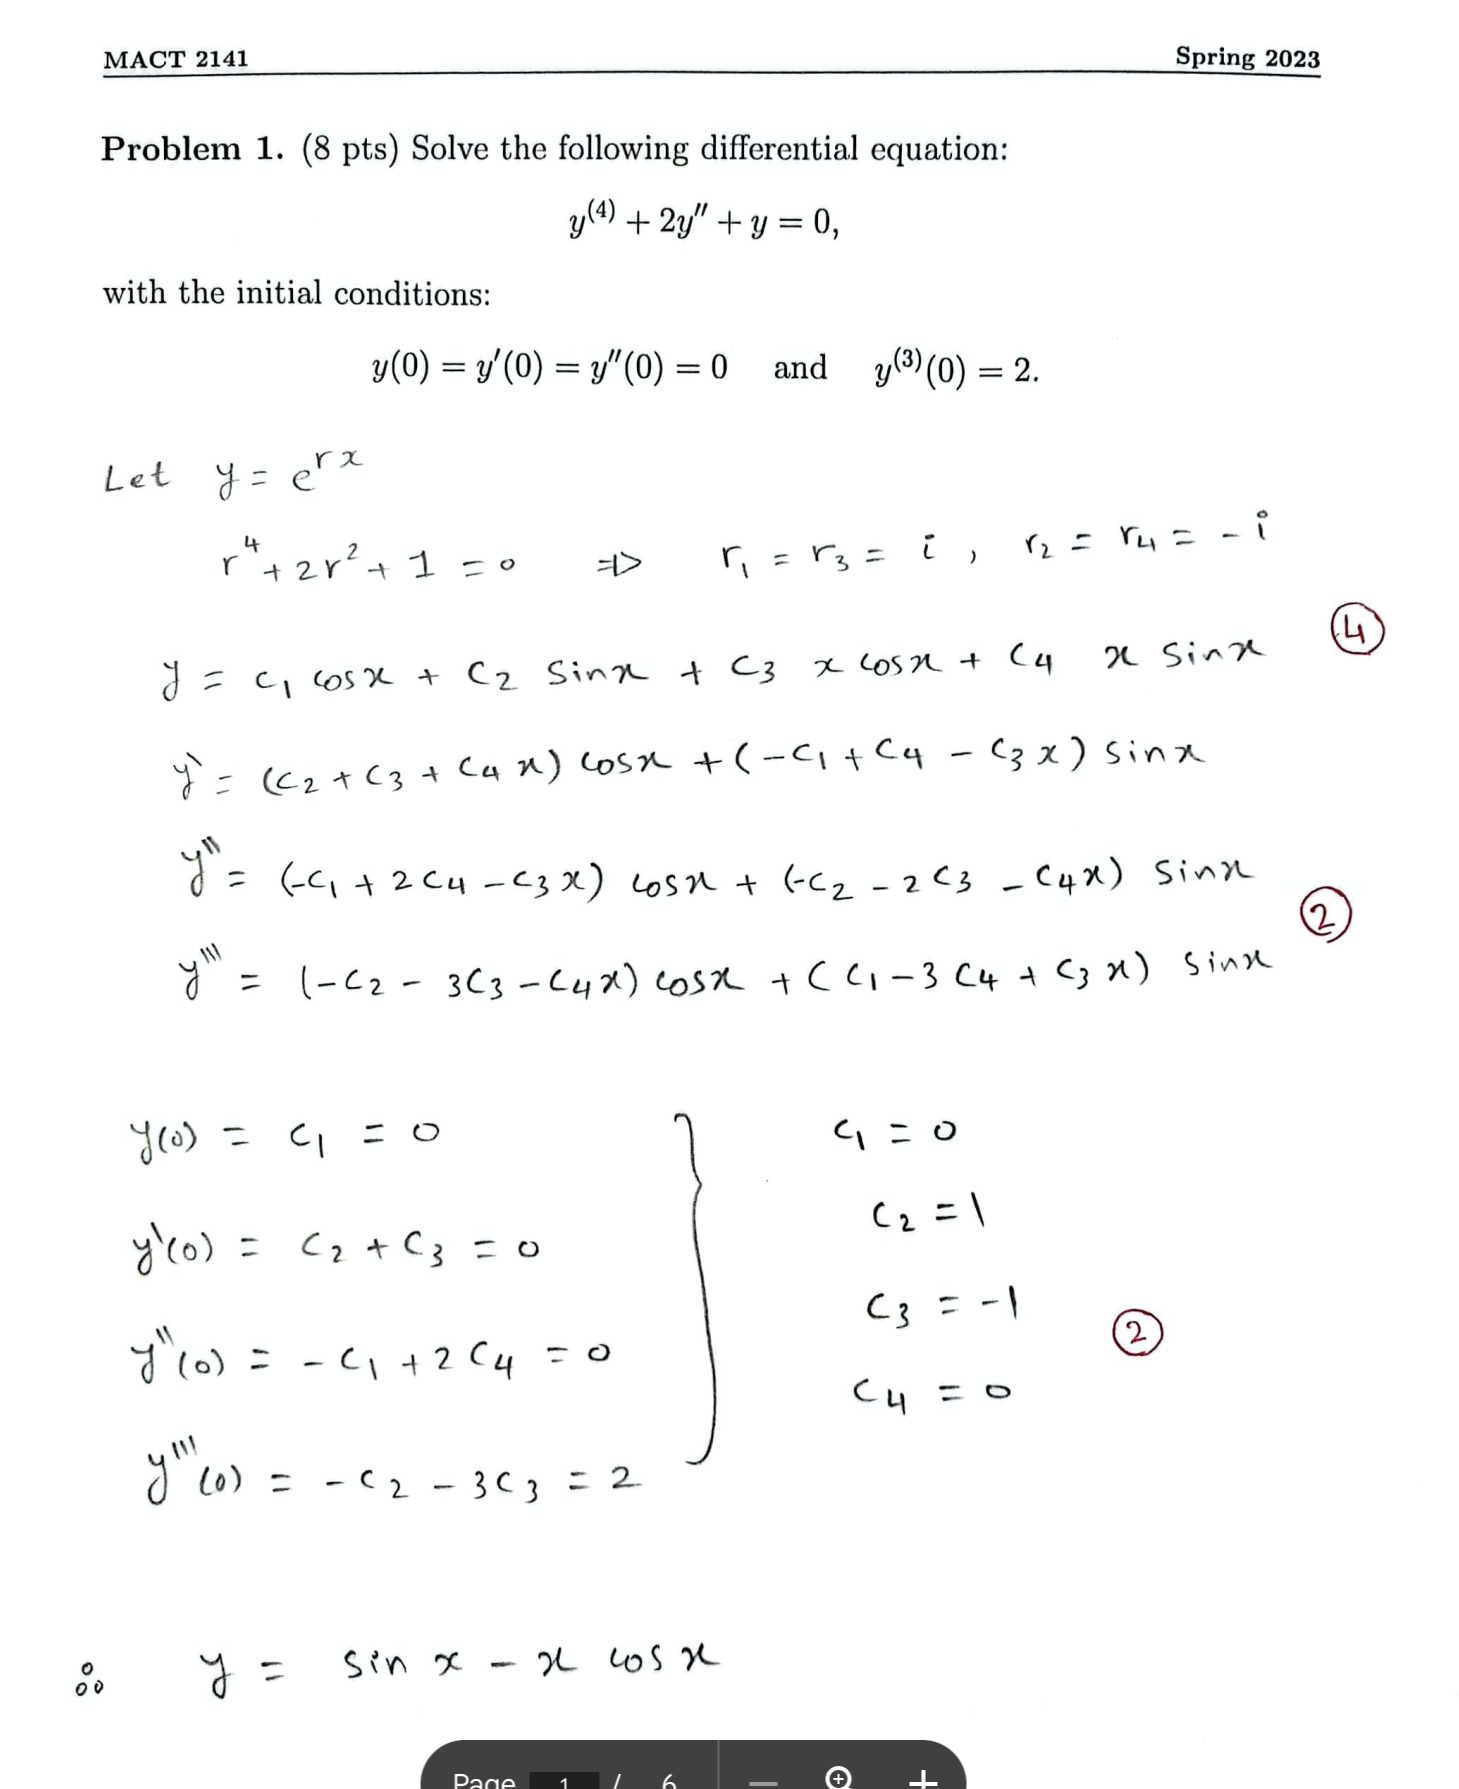 MACT 2141 Spring 2023
Problem 1. (8 pts) Solve the following differential equation:
y⁽⁴⁾ + 2y″ + y = 0,
with the initial conditions:
y(0) = y′(0) = y″(0) = 0 and y⁽³⁾(0) = 2.
Let y = e^{rx}
r⁴ + 2r² + 1 = 0 ⇒ r₁ = r₃ = i , r₂ = r₄ = -i
④
y = c₁ cosx + c₂ sinx + c₃ x cosx + c₄ x sinx
y' = (c₂ + c₃ + c₄ x) cosx + (-c₁ + c₄ - c₃ x) sinx
y'' = (-c₁ + 2c₄ - c₃ x) cosx + (-c₂ - 2c₃ - c₄x) sinx
②
y''' = (-c₂ - 3c₃ - c₄x) cosx + (c₁ - 3c₄ + c₃ x) sinx
y(0) = c₁ = 0 c₁ = 0
c₂ = 1
y'(0) = c₂ + c₃ = 0
c₃ = -1
②
y''(0) = -c₁ + 2c₄ = 0
c₄ = 0
y'''(0) = -c₂ - 3c₃ = 2
∴ y = sin x - x cos x
Page 1 / 6 — +